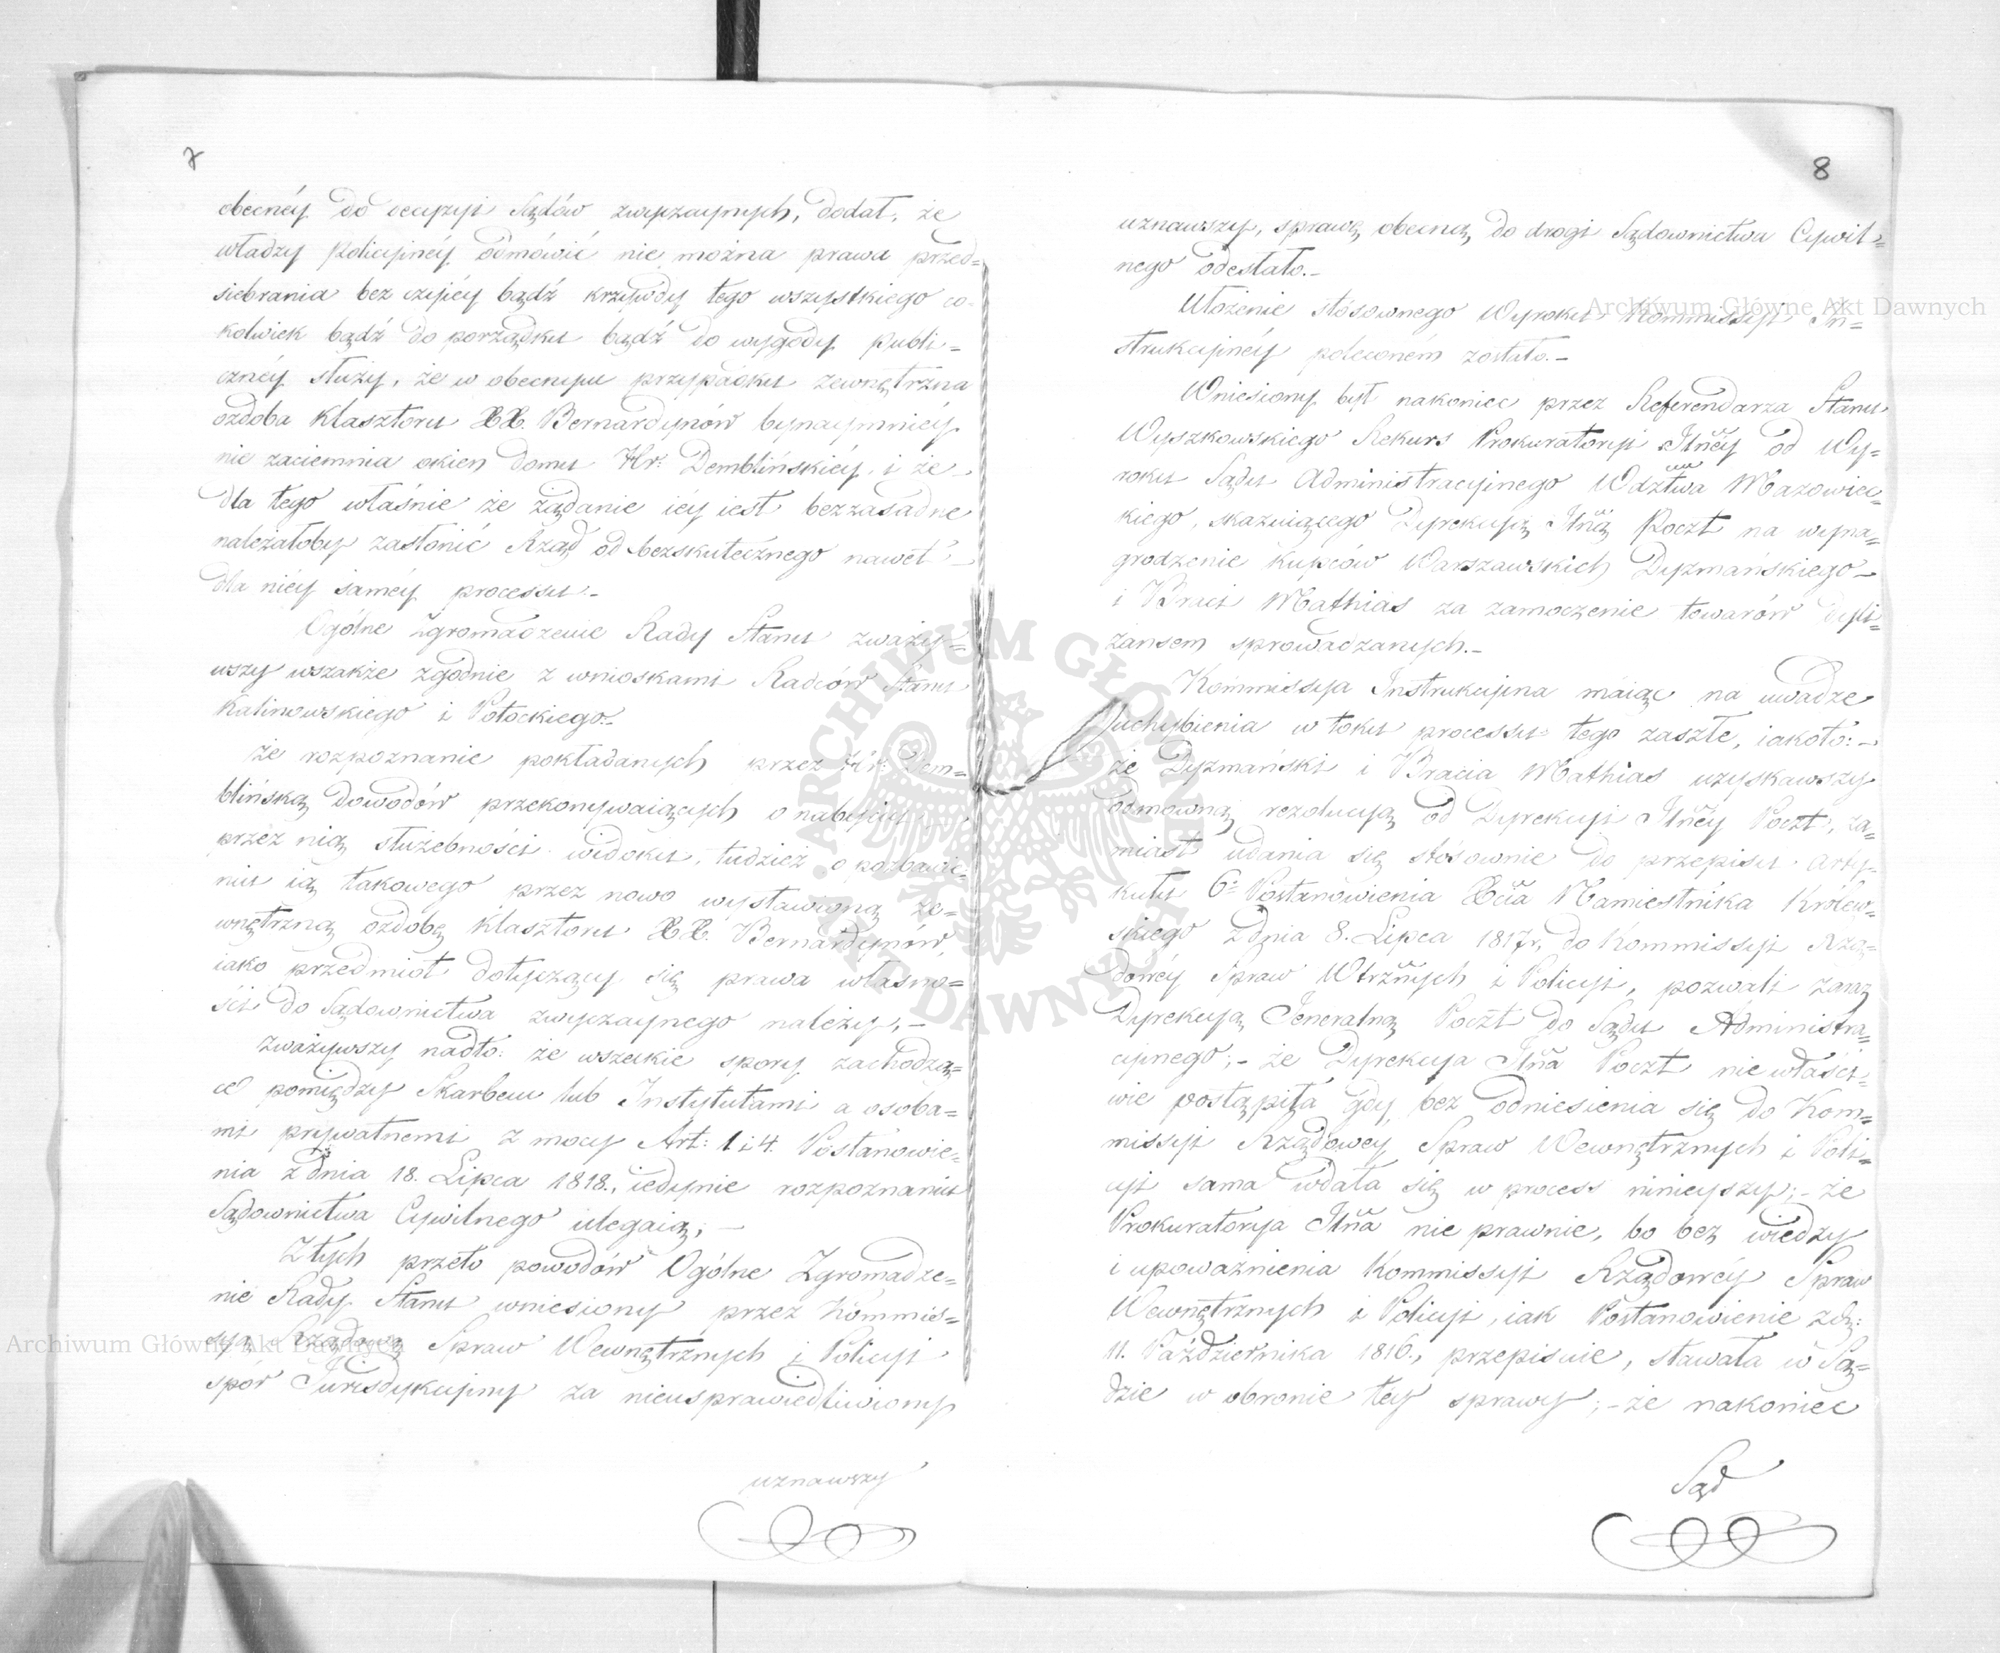 7
obecnéy do decyzyi Sądów zwyczaynych, dodał, że
władzy Policyjnéy odmówić nie można prawa przed=
siebrania bez czyiéy bądź krzywdy tego wszystkiego co=
kolwiek bądź do porządku bądź do wygody publi=
cznéy służy, że w obecnym przypadku zewnętrzna
ozdoba Klasztoru XX. Bernardynów bynaymniéy
nie zaciemnia okien domu Hr: Demblińskiéy, i że
dla tego właśnie że żądanie iéy iest bezzasadne
należałoby zasłonić Rząd od bezskutecznego nawet
dla niéy saméy processu.-
Ogólne Zgromadzenie Rady Stanu zważy=
wszy wszakże zgodnie z wnioskami Radców Stanu
Kalinowskiego i Potockiego:-
że rozpoznanie pokładanych przez Hr: Dem=
blińską dowodów przekonywaiących o nabyciu
przez nią służebności widoku, tudzież o pozbawie=
niu ią takowego przez nowo wystawioną ze=
wnętrzną ozdobę klasztoru XX. Bernardynów
iako przedmiot dotyczący się prawa własno=
ści do Sądownictwa zwyczaynego należy,-
zważywszy nadto: że wszelkie spory zachodzą=
ce pomiędzy Skarbem lub Instytutami a osoba=
mi prywatnemi z mocy Art: 1 i 4. Postanowie=
nia z dnia 18. Lipca 1818., iedynie rozpoznaniu
Sądownictwa Cywilnego ulegaią;-
Z tych przeto powodów Ogólne Zgromadze=
nie Rady Stanu wniesiony przez Kommis=
syą Rządową Spraw Wewnętrznych i Policyi
spór Jurisdykcyiny za nieusprawiedliwiony
uznawszy
8
uznawszy, sprawę obecną do drogi Sądownictwa Cywil=
nego odesłało.-
Ułożenie stósownego Wyroku Kommissyi In=
strukcyinéy poleconém zostało.-
Wniesiony był nakoniec przez Referendarza Stanu
Wyszkowskiego Rekurs Prokuratoryi Jlnéy od Wy=
roku Sądu Administracyinego Wdztwa Mazowiec=
kiego, skazuiącego Dyrekcyą Jlną Poczt na wyna=
grodzenie Kupców Warszawskich Dyzmańskiego
i Braci Mathias za zamoczenie towarów dyli=
żansem sprowadzanych.-
Kommissya Instrukcyina maiąc na uwadze
uchybienia w toku processu tego zaszłe, iakoto:-
że Dyzmański i Bracia Mathias uzyskawszy
odmowną rezolucyą od Dyrekcyi Jlnéy Poczt, za=
miast udania się stósownie do przepisu Arty=
kułu 6o Postanowienia Xcia Namiestnika Królew=
skiego z dnia 8. Lipca 1817r, do Kommissyi Rzą=
dowéy Spraw Wtrznych i Policyi, pozwali zaraz
Dyrekcyą Jeneralną Poczt do Sądu Administra=
cyinego;- że Dyrekcya Jlna Poczt niewłaści=
wie postąpiła gdy bez odniesienia się do Kom=
missyi Rządowey Spraw Wewnętrznych i Poli=
cyi sama wdała się w process ninieyszy;- że
Prokuratorya Jlna nie prawnie, bo bez wiedzy
i upoważnienia Kommissyi Rządowéy Spraw
Wewnętrznych i Policyi, iak Postanowienie z d:
11. Października 1816., przepisuie, stawała w Są=
dzie w obronie téy sprawy;- że nakoniec
Sąd
Archiwum Główne Akt Dawnych
Archiwum Główne Akt Dawnych
ARCHIWUM GŁÓWNE AKT DAWNYCH